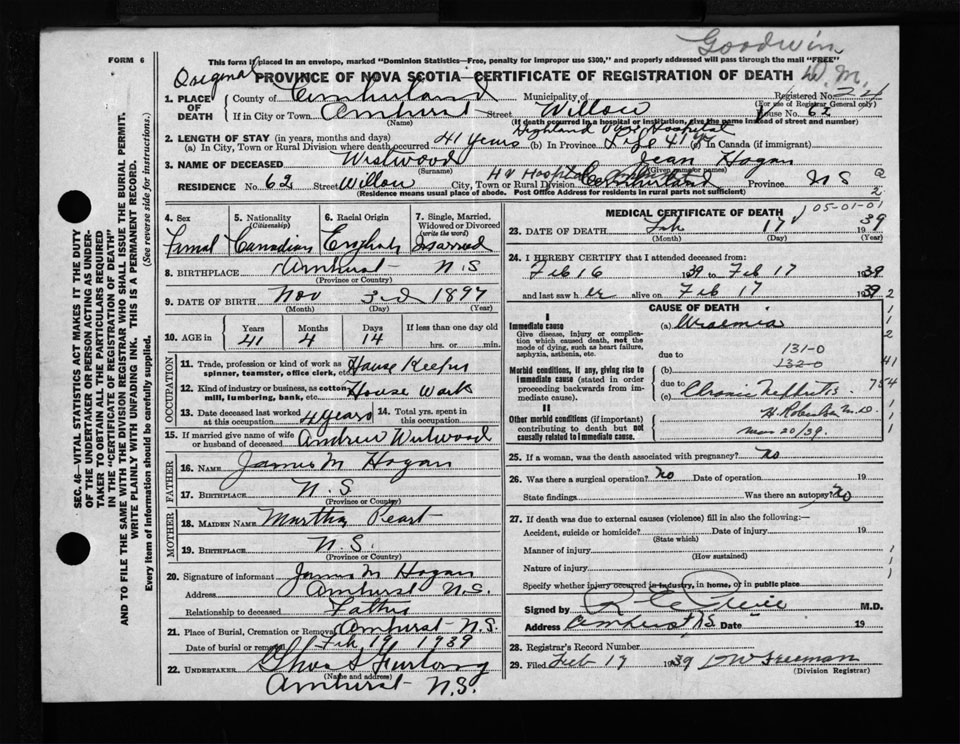 Goodwin
FORM 6
This form if placed in an envelope, marked "Dominion Statistics—Free, penalty for improper use $300," and properly addressed will pass through the mail "FREE"
Original
PROVINCE OF NOVA SCOTIA—CERTIFICATE OF REGISTRATION OF DEATH W.M.
1. PLACE OF DEATH County of Cumberland Municipality of Registered No. 24
(For use of Registrar General only)
If in City or Town Amherst Street Willow House No. 62
(Name) (If death occurred in a hospital or institution, give the name instead of street and number)
Highland View Hospital
2. LENGTH OF STAY (in years, months and days)
(a) In City, Town or Rural Division where death occurred 41 years (b) In Province Life 41 yrs (c) In Canada (if immigrant)
3. NAME OF DECEASED Westwood Jean Hogan
(Surname) (Given name or names)
RESIDENCE No. 62 Street Willow City, Town or Rural Division Cumberland Province N S
H V Hospital
(Residence means usual place of abode. Post Office Address for residents in rural parts not sufficient)
4. Sex Femal
5. Nationality (Citizenship) Canadian
6. Racial Origin English
7. Single, Married, Widowed or Divorced (write the word) Married
8. BIRTHPLACE Amherst N.S
(Province or Country)
9. DATE OF BIRTH Nov 3rd 1897
(Month) (Day) (Year)
10. AGE in Years 41 Months 4 Days 14 If less than one day old hrs. or min.
OCCUPATION
11. Trade, profession or kind of work as spinner, teamster, office clerk, etc. House Keeper
12. Kind of industry or business, as cotton mill, lumbering, bank, etc. House Work
13. Date deceased last worked at this occupation 4 years 14. Total yrs. spent in this occupation
15. If married give name of wife or husband of deceased Andrew Westwood
FATHER
16. NAME James M Hogan
17. BIRTHPLACE N.S.
(Province or Country)
MOTHER
18. MAIDEN NAME Martha Peart
19. BIRTHPLACE N.S.
(Province or Country)
20. Signature of informant James M Hogan
Address Amherst N.S.
Relationship to deceased Father
21. Place of Burial, Cremation or Removal Amherst N.S.
Date of burial or removal Feb 19 1939
22. UNDERTAKER Thos S Furlong
(Name and address)
Amherst N.S.
MEDICAL CERTIFICATE OF DEATH
05-01-01
23. DATE OF DEATH Feb 17 1939
(Month) (Day) (Year)
24. I HEREBY CERTIFY that I attended deceased from:
Feb 16 1939 to Feb 17 1939
and last saw her alive on Feb 17 1939
CAUSE OF DEATH
I
Immediate cause (a) Uraemia
Give disease, injury or complication which caused death, not the mode of dying, such as heart failure, asphyxia, asthenia, etc.
due to 131-0
Morbid conditions, if any, giving rise to immediate cause (stated in order proceeding backwards from immediate).
(b) 132-0
due to
(c) Chronic Nephritis
II
Other morbid conditions (if important) contributing to death but not causally related to immediate cause.
H. Robertson M.D.
Mar 20/39.
25. If a woman, was the death associated with pregnancy? No
26. Was there a surgical operation? No Date of operation 19
State findings Was there an autopsy? No
27. If death was due to external causes (violence) fill in also the following:—
Accident, suicide or homicide? Date of injury 19
(State which)
Manner of injury
(How sustained)
Nature of injury
Specify whether injury occurred in industry, in home, or in public place
Signed by M.D.
Address Amherst N.S. Date 19
28. Registrar's Record Number
29. Filed Feb 17 1939 D W Freeman
(Division Registrar)
SEC. 46—VITAL STATISTICS ACT MAKES IT THE DUTY
OF THE UNDERTAKER OR PERSON ACTING AS UNDER-
TAKER TO OBTAIN ALL THE PARTICULARS REQUIRED
IN THE "CERTIFICATE OF REGISTRATION OF DEATH"
AND TO FILE THE SAME WITH THE DIVISION REGISTRAR WHO SHALL ISSUE THE BURIAL PERMIT.
(See reverse side for instructions.)
WRITE PLAINLY WITH UNFADING INK. THIS IS A PERMANENT RECORD.
Every item of information should be carefully supplied.